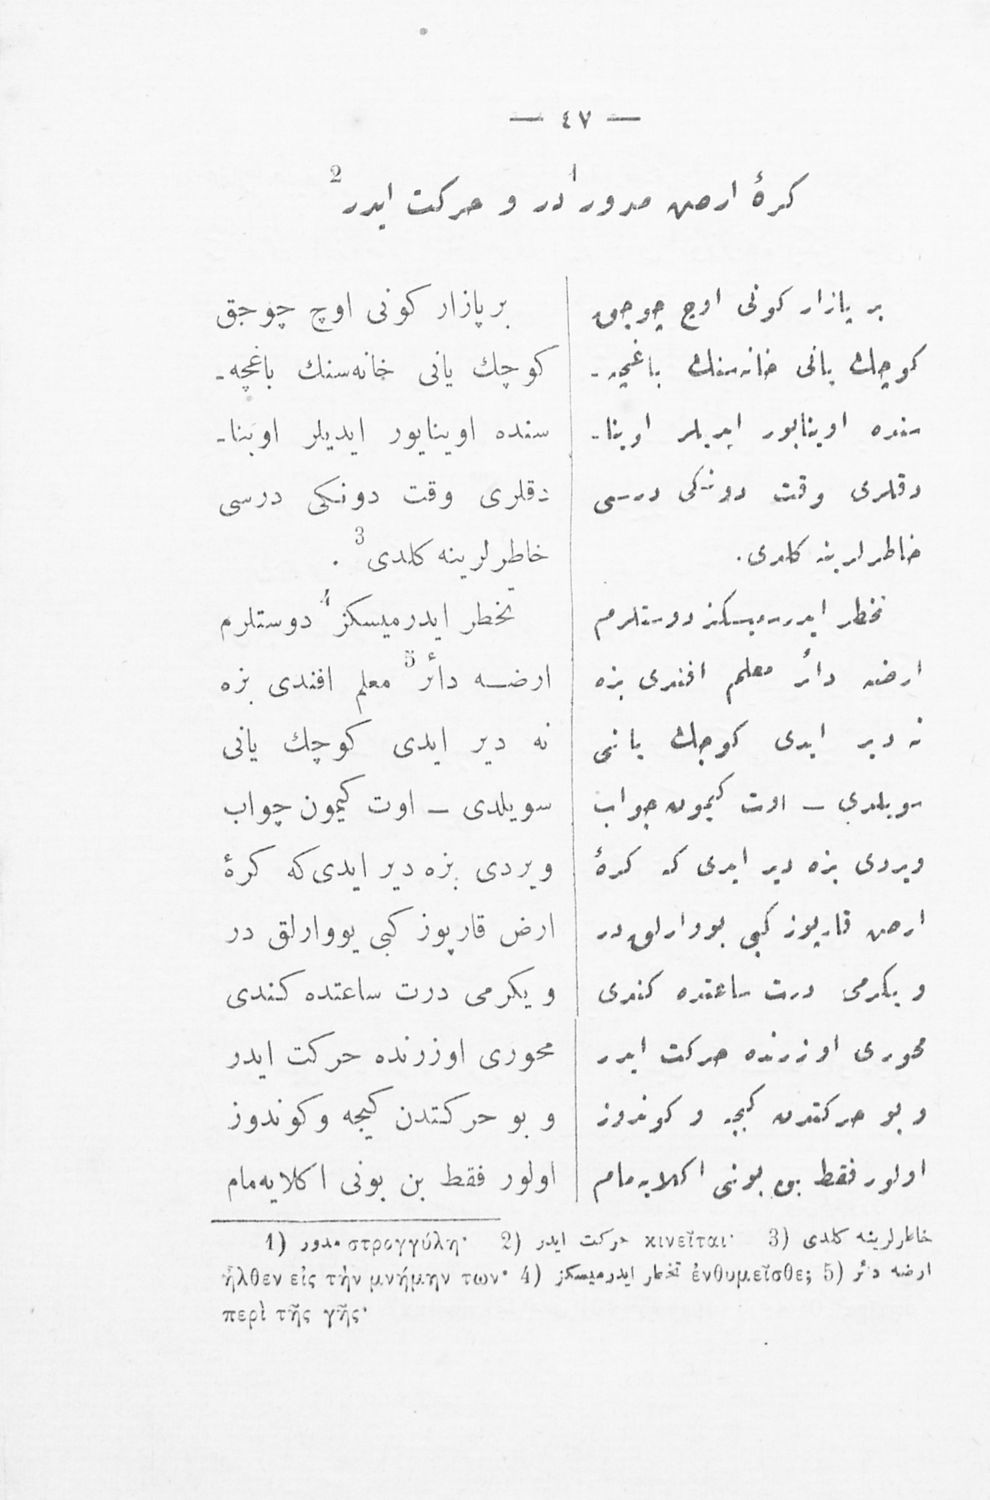 — ٤٧ —
كرۀ ارض مدور1 در و حركت ايدر2
بر پازار كونی اوچ چوجق
كوچك يانی خانه‌سنك باغچه‌ـ
سنده اوينايور ايديلر اوينا‌ـ
دقلری وقت دونكی درسی
خاطرلرينه كلدی.
تخطر ايدرميسكز دوستلرم
ارضه دائر معلم افندی بزه
نه دير ايدی كوچك يانی
سويلدی — اوت كيمون جواب
ويردی بزه دير ايدی كه كرۀ
ارض قارپوز كبی يووارلق در
و يكرمی درت ساعتده كندی
محوری اوزرنده حركت ايدر
و بو حركتدن كيجه و كوندوز
اولور فقط بن بونی اكلايه‌مام
بر پازار كونی اوچ چوجق
كوچك يانی خانه‌سنك باغچه‌ـ
سنده اوينايور ايديلر اوينا‌ـ
دقلری وقت دونكی درسی
خاطرلرينه كلدی3.
تخطر ايدرميسكز4 دوستلرم
ارضـه دائر5 معلم افندی بزه
نه دير ايدی كوچك يانی
سويلدی — اوت كيمون چواب
ويردی بزه دير ايدی كه كرۀ
ارض قارپوز كبی يووارلق در
و يكرمی درت ساعتده كندی
محوری اوزرنده حركت ايدر
و بو حركتدن كيجه و كوندوز
اولور فقط بن بونی اكلايه‌مام
1) مدور στρογγύλη· 2) حركت ايدر κινεῖται· 3) خاطرلرينه كلدی
ἦλθεν εἰς τὴν μνήμην των· 4) تخطر ايدرميسكز ἐνθυμεῖσθε; 5) ارضه دئر
περὶ τῆς γῆς·